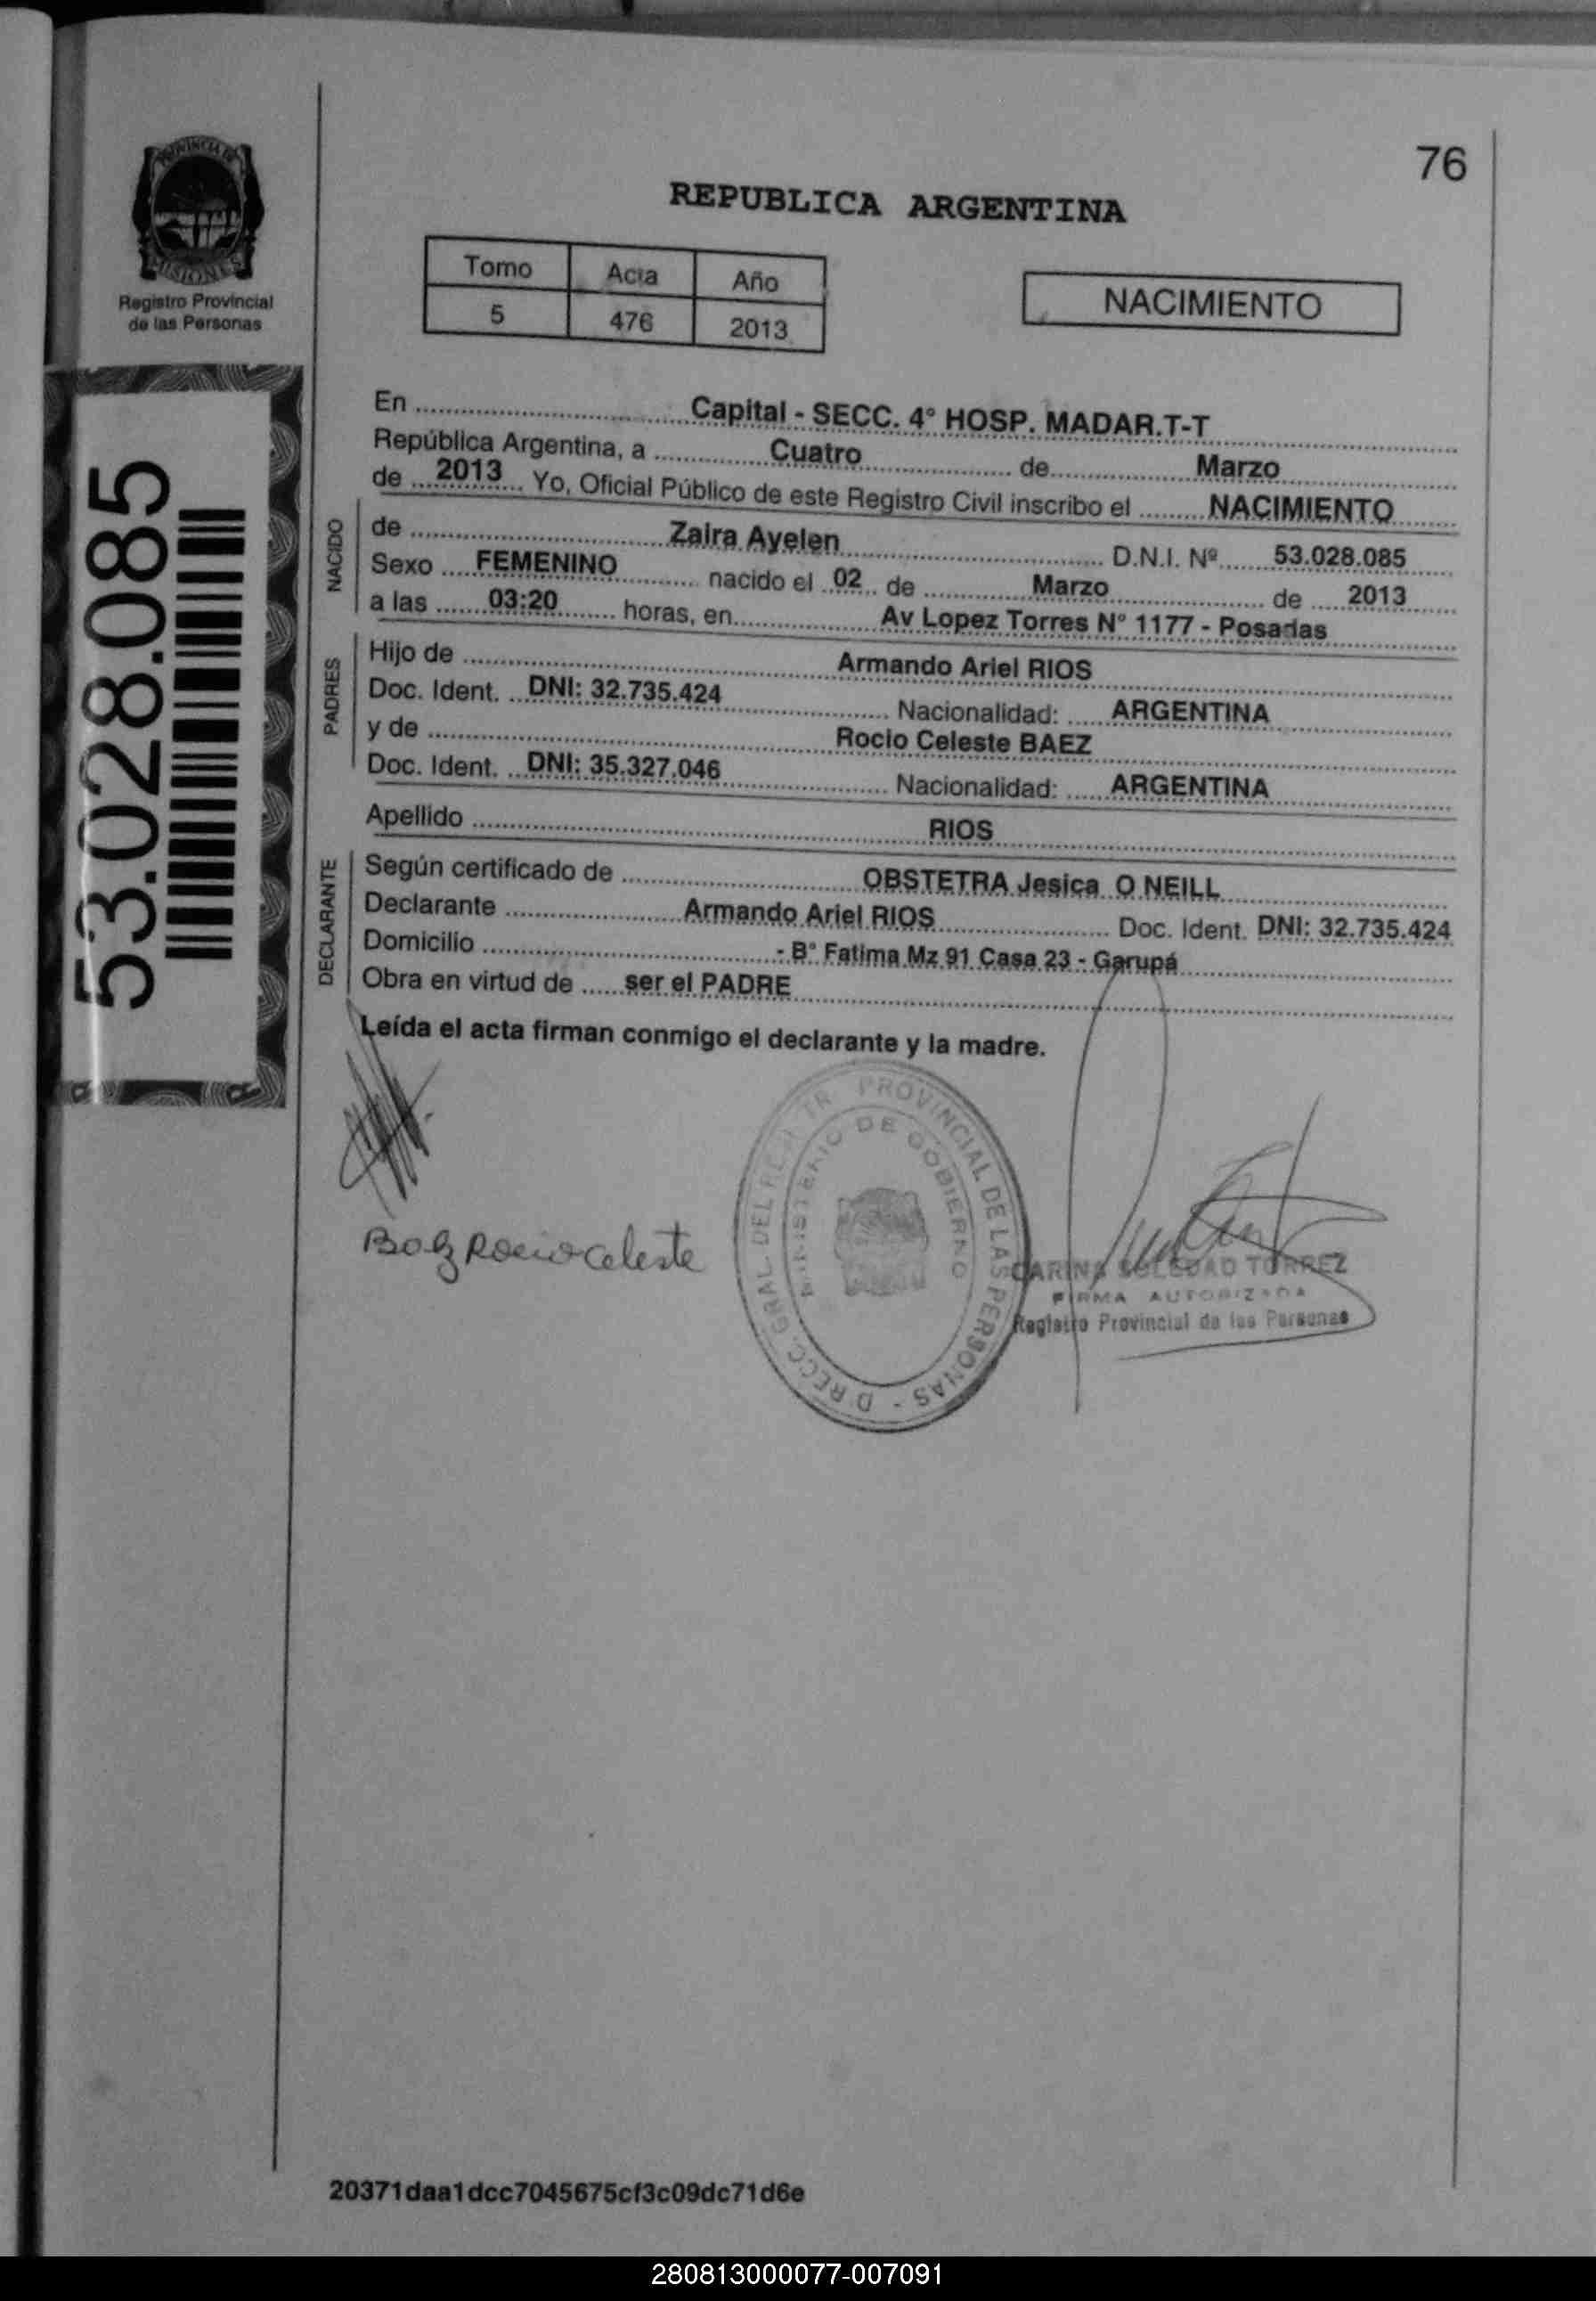 76
PROVINCIA DE
MISIONES
Registro Provincial
de las Personas
REPUBLICA ARGENTINA
Tomo Acta Año
5 476 2013
NACIMIENTO
53.028.085
En Capital - SECC. 4° HOSP. MADAR.T-T
República Argentina, a Cuatro de Marzo
de 2013 Yo, Oficial Público de este Registro Civil inscribo el NACIMIENTO
NACIDO
de Zaira Ayelen D.N.I. Nº 53.028.085
Sexo FEMENINO nacido el 02 de Marzo de 2013
a las 03:20 horas, en Av Lopez Torres N° 1177 - Posadas
PADRES
Hijo de Armando Ariel RIOS
Doc. Ident. DNI: 32.735.424 Nacionalidad: ARGENTINA
y de Rocio Celeste BAEZ
Doc. Ident. DNI: 35.327.046 Nacionalidad: ARGENTINA
Apellido RIOS
DECLARANTE
Según certificado de OBSTETRA Jesica O NEILL
Declarante Armando Ariel RIOS Doc. Ident. DNI: 32.735.424
Domicilio - B° Fatima Mz 91 Casa 23 - Garupá
Obra en virtud de ser el PADRE
Leída el acta firman conmigo el declarante y la madre.
Baez Rocio Celeste
PROVINCIAL DE LAS PERSONAS -
MINISTERIO DE GOBIERNO
CARINA SOLEDAD TORREZ
FIRMA AUTORIZADA
Registro Provincial de las Personas
20371daa1dcc7045675cf3c09dc71d6e
280813000077-007091